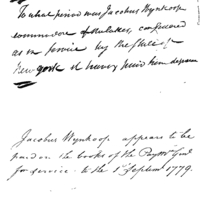 To what period was Jacobus Wynkoop
commodore of the lakes, considered
as in service by the State of
New York & having paid him
Jacobus Wynkoop appears to be
paid on the books of the Paymr Genl
for service to the 1st Septemr 1779.